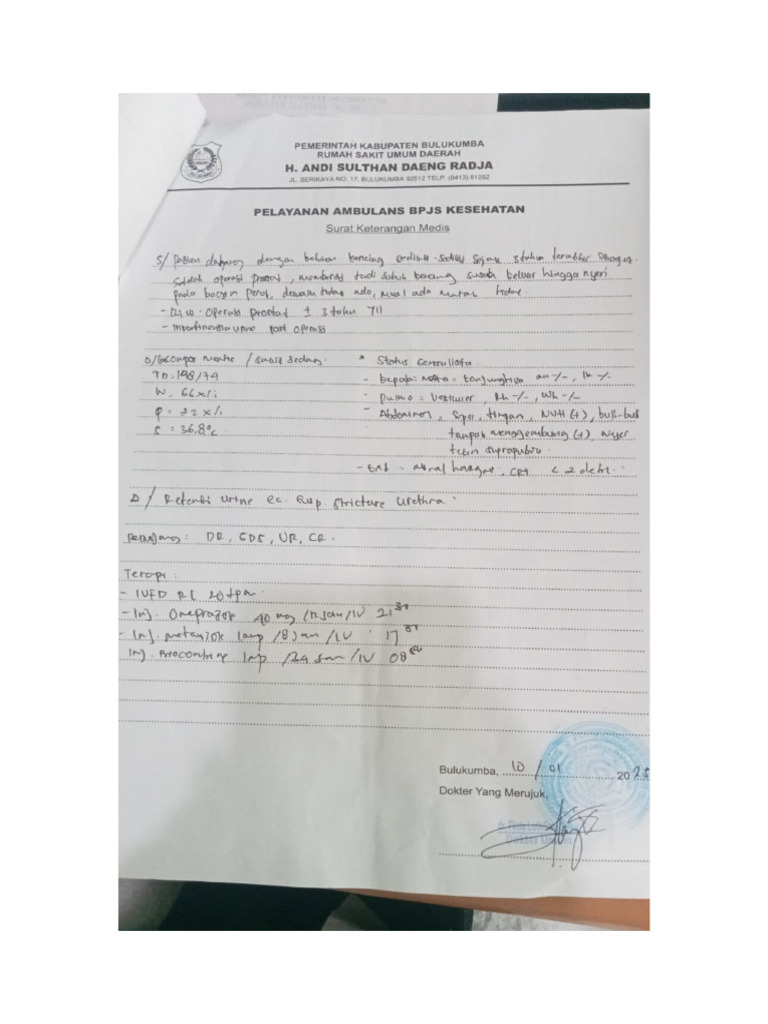 PEMERINTAH KABUPATEN BULUKUMBA
RUMAH SAKIT UMUM DAERAH
H. ANDI SULTHAN DAENG RADJA
JL. SERIKAYA NO. 17, BULUKUMBA 92512 TELP. (0413) 81292
PELAYANAN AMBULANS BPJS KESEHATAN
Surat Keterangan Medis
S/ Pasien datang dengan keluhan kencing sedikit-sedikit Sejak 3 tahun terakhir
Setelah operasi prostat, memberat tadi subuh kencing susah keluar hingga nyeri
pada bagian perut, demam tidak ada, mual ada muntah tidak.
- Riw. Operasi prostat ± 3 tahun yll
- Inkontinensia urine post operasi
O/ / Sakit Sedang * Status Generalista
TD: 198/79 - kepala: mata: konjungtiva an -/-, Ik -/-
N: 66 x/i - pulmo: Vesikuler, Rh -/-, Wh -/-
P = 22 x/i - Abdomen,
S = 36,8°C tampak menggembung (+), Nyeri
tekan suprapubis.
- Ext: Akral hangat, CRT < 2 detik.
D/ Retensi Urine ec. Susp. Stricture Urethra
Penunjang: DR, GDS, UR, CR.
Terapi:
- IVFD RL 20 tpm
- Inj. Omeprazole 40 mg /12 Jam/IV 21
- Inj. 1 amp /8 Jam /IV 17
Inj. 1 Amp /24 Jam /IV 08
Bulukumba, 10 / 01 2025
Dokter Yang Merujuk,
Dokter Umum